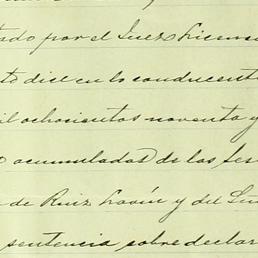 tado por el Juez Licencia
to dice en lo conducente
il ochocientos noventa y
o acumulados de los ses
de Ruiz Lavín y del Lu
sentencia sobre declar